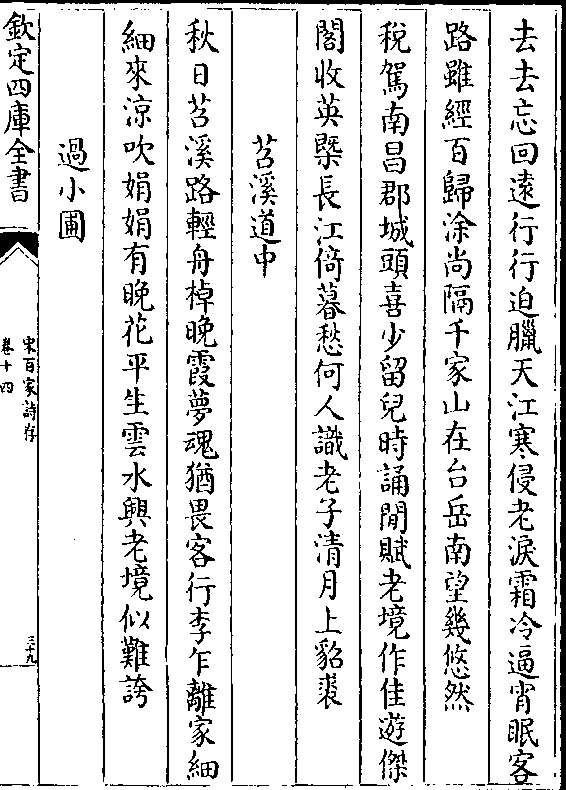 去去忘回遠行行迫臘天江寒侵老淚霜冷逼宵眠客
路雖經百歸涂尚隔千家山在台岳南望幾悠然
稅駕南昌郡城頭喜少留兒時誦閒賦老境作佳遊傑
閣收英槩長江倚暮愁何人識老子清月上貂裘
苕溪道中
秋日苕溪路輕舟棹晚霞夢魂猶畏客行李乍離家細
細來涼吹娟娟有晚花平生雲水興老境似難誇
過小圃
欽定四庫全書
宋百家詩存
卷十四
三十九